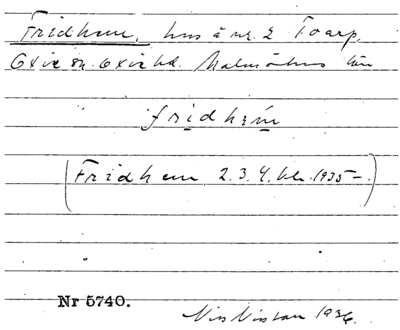 Fridhem, hus å nr. 2 Toarp,
Oxie sn. Oxie hd. Malmöhus län
fridhem
(Fridhem 2.3.4. kl. 1935–.)
Nr 5740.
Nils Nilsson 1936.